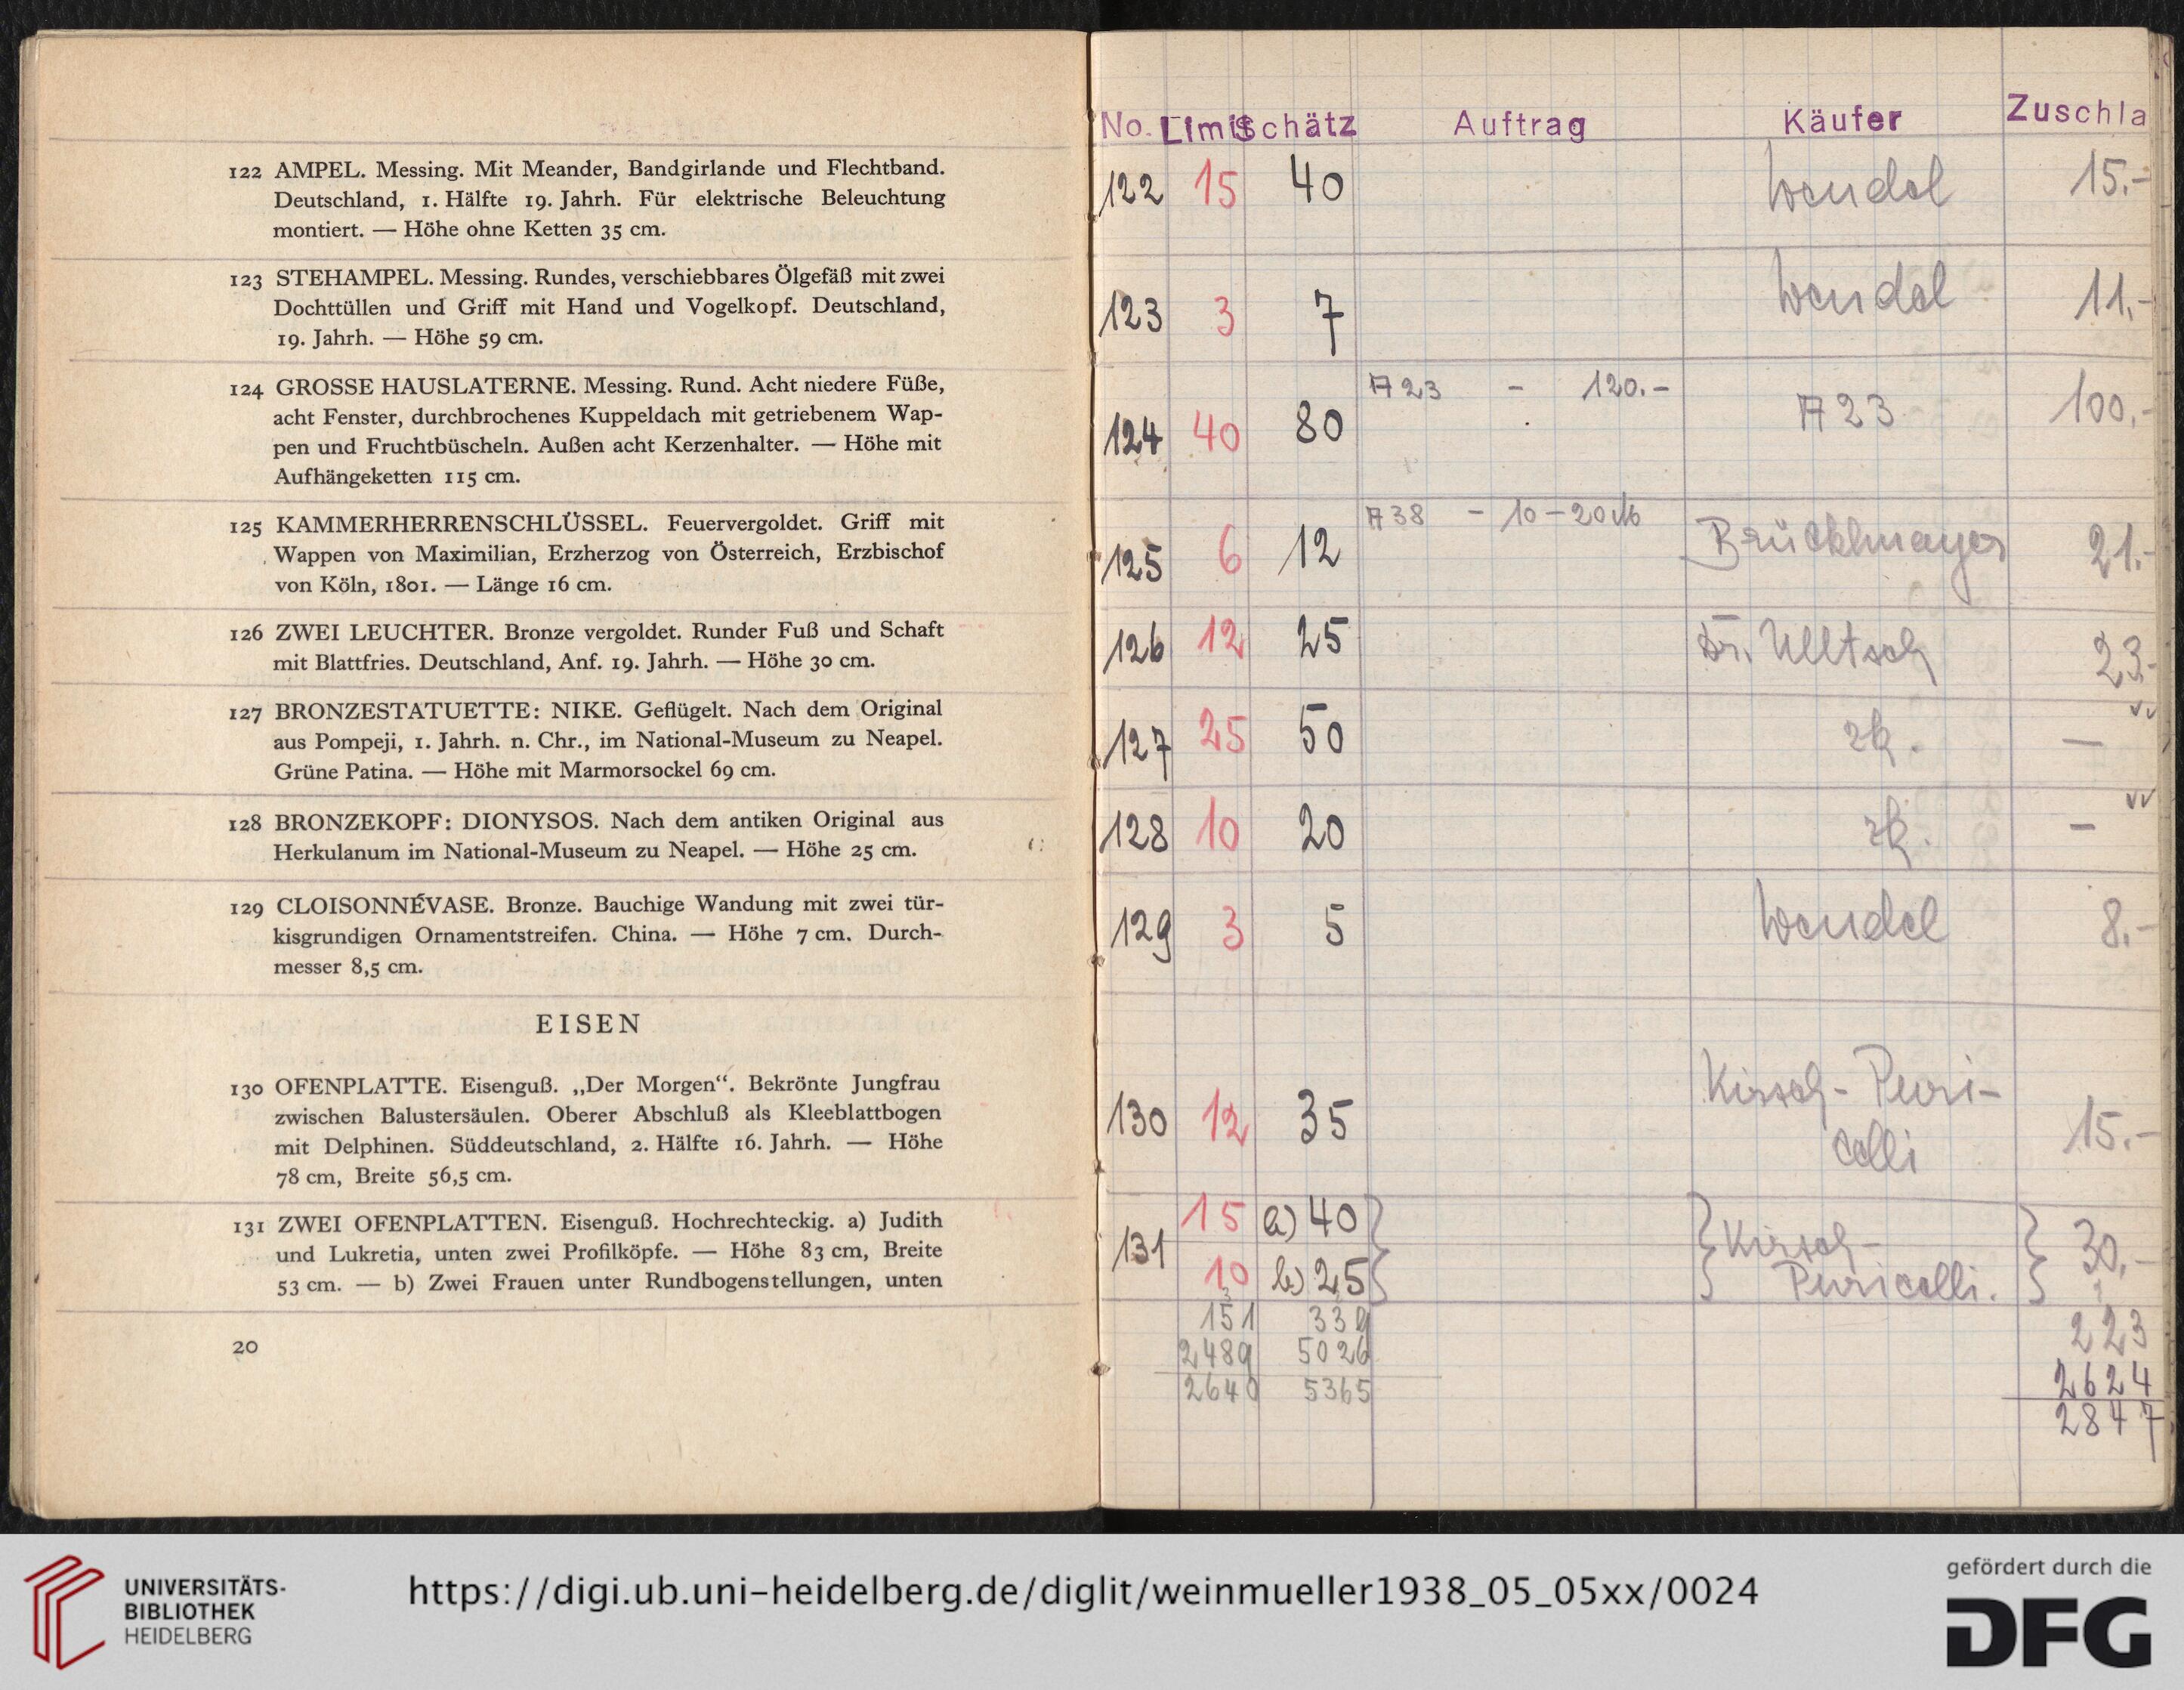 122 AMPEL. Messing. Mit Meander, Bandgirlande und Flechtband.
Deutschland, 1. Hälfte 19. Jahrh. Für elektrische Beleuchtung
montiert. — Höhe ohne Ketten 35 cm.
123 STEHAMPEL. Messing. Rundes, verschiebbares Ölgefäß mit zwei
Dochttüllen und Griff mit Hand und Vogelkopf. Deutschland,
19. Jahrh. — Höhe 59 cm.
124 GROSSE HAUSLATERNE. Messing. Rund. Acht niedere Füße,
acht Fenster, durchbrochenes Kuppeldach mit getriebenem Wap-
pen und Fruchtbüscheln. Außen acht Kerzenhalter. — Höhe mit
Aufhängeketten 115 cm.
125 KAMMERHERRENSCHLÜSSEL. Feuervergoldet. Griff mit
Wappen von Maximilian, Erzherzog von Österreich, Erzbischof
von Köln, 1801. — Länge 16 cm.
126 ZWEI LEUCHTER. Bronze vergoldet. Runder Fuß und Schaft
mit Blattfries. Deutschland, Anf. 19. Jahrh. — Höhe 30 cm.
127 BRONZESTATUETTE: NIKE. Geflügelt. Nach dem Original
aus Pompeji, 1. Jahrh. n. Chr., im National-Museum zu Neapel.
Grüne Patina. — Höhe mit Marmorsockel 69 cm.
128 BRONZEKOPF: DIONYSOS. Nach dem antiken Original aus
Herkulanum im National-Museum zu Neapel. — Höhe 25 cm.
129 CLOISONNÉVASE. Bronze. Bauchige Wandung mit zwei tür-
kisgrundigen Ornamentstreifen. China. — Höhe 7 cm. Durch-
messer 8,5 cm.
EISEN
130 OFENPLATTE. Eisenguß. „Der Morgen“. Bekrönte Jungfrau
zwischen Balustersäulen. Oberer Abschluß als Kleeblattbogen
mit Delphinen. Süddeutschland, 2. Hälfte 16. Jahrh. — Höhe
78 cm, Breite 56,5 cm.
131 ZWEI OFENPLATTEN. Eisenguß. Hochrechteckig. a) Judith
und Lukretia, unten zwei Profilköpfe. — Höhe 83 cm, Breite
53 cm. — b) Zwei Frauen unter Rundbogenstellungen, unten
20
No. Limit Schätz Auftrag Käufer Zuschla
122 15 40 Wendel 15.-
123 3 7 Wendel 11.-
124 40 80 A 23 - 120.- A 23 100.-
125 6 12 A 38 - 10 - 20 M Brücklmayer 21.-
126 12 25 Dr. 23.-
127 25 50 zk. —
128 10 20 zk. —
129 3 5 Wendel 8.-
130 12 35 Kirsch-Puri-
celli 15.-
131 15 a) 40 Kirsch- 30.-
10 b) 25 Puricelli.
151 339 223
2489 5026 2624
2640 5365 2847
UNIVERSITÄTS-
BIBLIOTHEK
HEIDELBERG
https://digi.ub.uni-heidelberg.de/diglit/weinmueller1938_05_05xx/0024
gefördert durch die
DFG